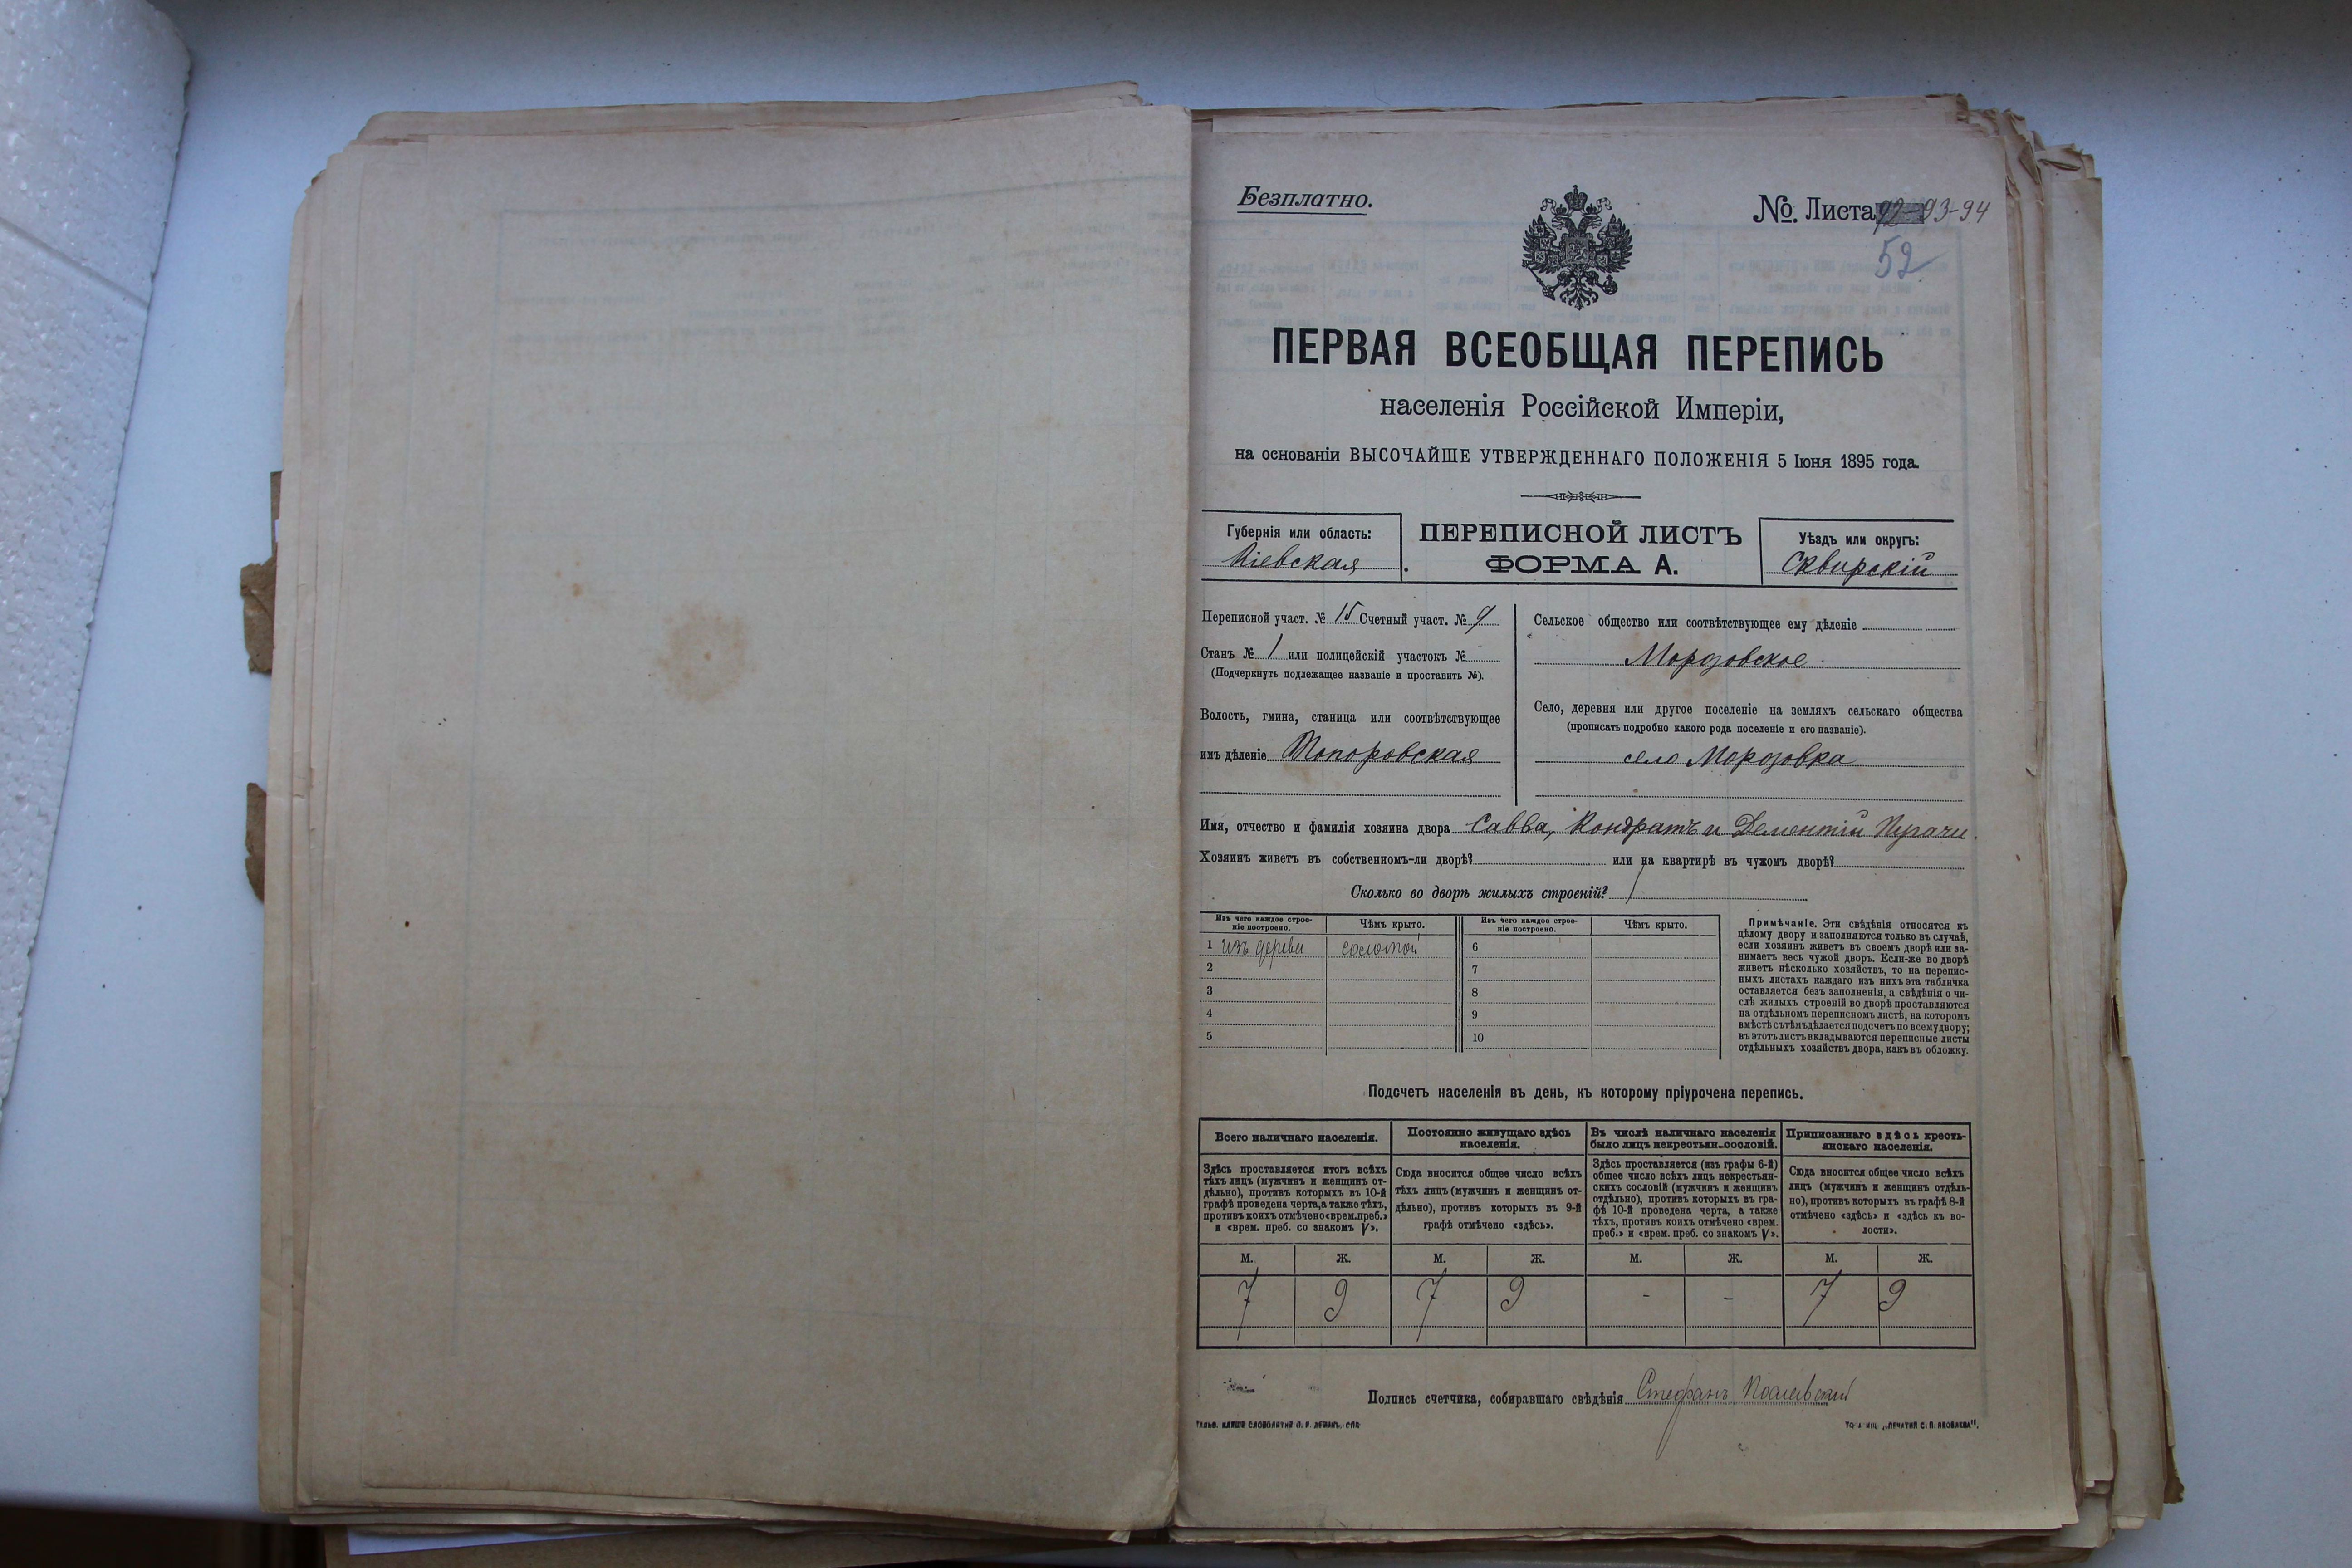 Безплатно.
№. Листа 92-93-94
52
ПЕРВАЯ ВСЕОБЩАЯ ПЕРЕПИСЬ
населенія Россійской Имперіи,
на основаніи ВЫСОЧАЙШЕ УТВЕРЖДЕННАГО ПОЛОЖЕНІЯ 5 Іюня 1895 года.
Губернія или область:
Кіевская
ПЕРЕПИСНОЙ ЛИСТЪ
ФОРМА А.
Уѣздъ или округъ:
Сквирскій
Переписной участ. № 15 Счетный участ. № 9
Станъ № 1 или полицейскій участокъ №
(Подчеркнуть подлежащее названіе и проставить №).
Волость, гмина, станица или соотвѣтствующее
имъ дѣленіе Топоровская
Сельское общество или соотвѣтствующее ему дѣленіе
Морозовское
Село, деревня или другое поселеніе на земляхъ сельскаго общества
(прописать подробно какого рода поселеніе и его названіе).
село Морозовка
Имя, отчество и фамилія хозяина двора Савва, Кондратъ и Дементій
Хозяинъ живетъ въ собственномъ-ли дворѣ? или на квартирѣ въ чужомъ дворѣ?
Сколько во дворѣ жилыхъ строеній? 1
Изъ чего каждое строе-
ніе построено.
Чѣмъ крыто.
Изъ чего каждое строе-
ніе построено.
Чѣмъ крыто.
1 изъ дерева соломой 6
2 7
3 8
4 9
5 10
Примѣчаніе. Эти свѣдѣнія относятся къ
цѣлому двору и заполняются только въ случаѣ,
если хозяинъ живетъ въ своемъ дворѣ или за-
нимаетъ весь чужой дворъ. Если-же во дворѣ
живетъ нѣсколько хозяйствъ, то на перепис-
ныхъ листахъ каждаго изъ нихъ эта табличка
оставляется безъ заполненія, а свѣдѣнія о чи-
слѣ жилыхъ строеній во дворѣ проставляются
на отдѣльномъ переписномъ листѣ, на которомъ
вмѣстѣ съ тѣмъ дѣлается подсчетъ по всему двору;
въ этотъ листъ вкладываются переписные листы
отдѣльныхъ хозяйствъ двора, какъ въ обложку.
Подсчетъ населенія въ день, къ которому пріурочена перепись.
Всего наличнаго населенія.
Здѣсь проставляется итогъ всѣхъ
тѣхъ лицъ (мужчинъ и женщинъ от-
дѣльно), противъ которыхъ въ 10-й
графѣ проведена черта, а также тѣхъ,
противъ коихъ отмѣчено «врем. преб.»
и «врем. преб. со знакомъ V».
Постоянно живущаго здѣсь
населенія.
Сюда вносится общее число всѣхъ
тѣхъ лицъ (мужчинъ и женщинъ от-
дѣльно), противъ которыхъ въ 9-й
графѣ отмѣчено «здѣсь».
Въ числѣ наличнаго населенія
было лицъ некрестьян. сословій.
Здѣсь проставляется (изъ графы 6-й)
общее число всѣхъ лицъ некрестьян-
скихъ сословій (мужчинъ и женщинъ
отдѣльно), противъ которыхъ въ гра-
фѣ 10-й проведена черта, а также
тѣхъ, противъ коихъ отмѣчено «врем.
преб.» и «врем. преб. со знакомъ V».
Приписаннаго здѣсь кресть-
янскаго населенія.
Сюда вносится общее число всѣхъ
лицъ (мужчинъ и женщинъ отдѣль-
но), противъ которыхъ въ графѣ 8-й
отмѣчено «здѣсь» и «здѣсь къ во-
лости».
М. Ж. М. Ж. М. Ж. М. Ж.
7 9 7 9 - - 7 9
Подпись счетчика, собиравшаго свѣдѣнія Стефанъ